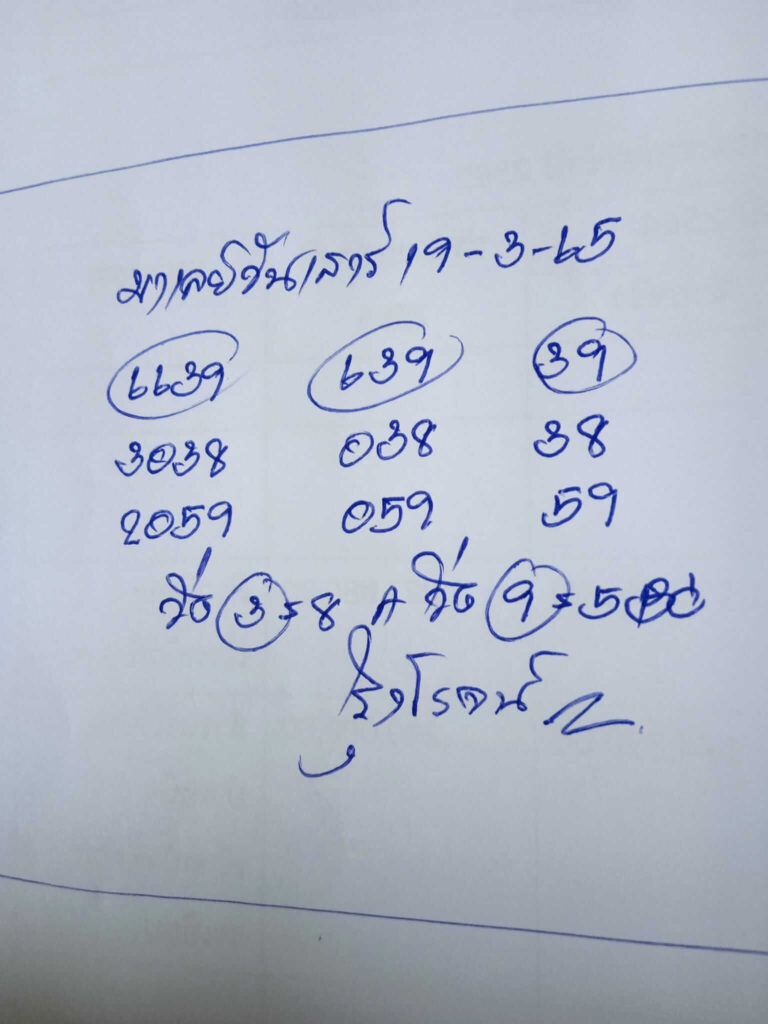 มาเลย์วันเสาร์ 19-3-65
6639 639 39
3038 038 38
2059 059 59
วิ่ง 3=8 วิ่ง 9=5
รุ่งโรจน์